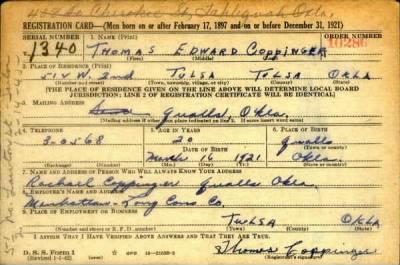 Tahlequah Okla
REGISTRATION CARD—(Men born on or after February 17, 1897 and on or before December 31, 1921)
SERIAL NUMBER 1. NAME (Print) ORDER NUMBER
1340 THOMAS EDWARD COPPINGER 10286
(First) (Middle) (Last)
2. PLACE OF RESIDENCE (Print)
514 W. 2nd TULSA TULSA OKLA
(Number and street) (Town, township, village, or city) (County) (State)
[THE PLACE OF RESIDENCE GIVEN ON THE LINE ABOVE WILL DETERMINE LOCAL BOARD
JURISDICTION; LINE 2 OF REGISTRATION CERTIFICATE WILL BE IDENTICAL]
3. MAILING ADDRESS
Qualls, Okla.
[Mailing address if other than place indicated on line 2. If same insert word same]
4. TELEPHONE 5. AGE IN YEARS 6. PLACE OF BIRTH
3-0568 20 Qualls
DATE OF BIRTH (Town or county)
March 16 1921 Okla.
(Exchange) (Number) (Mo.) (Day) (Yr.) (State or country)
7. NAME AND ADDRESS OF PERSON WHO WILL ALWAYS KNOW YOUR ADDRESS
Rachael Coppinger Qualls Okla.
8. EMPLOYER'S NAME AND ADDRESS
Manhattan-Long Cons Co.
9. PLACE OF EMPLOYMENT OR BUSINESS
TULSA OKLA
(Number and street or R. F. D. number) (Town) (County) (State)
I AFFIRM THAT I HAVE VERIFIED ABOVE ANSWERS AND THAT THEY ARE TRUE.
D. S. S. Form 1 Thomas Coppinger
(Revised 1-1-42) (over) (Registrant's signature)